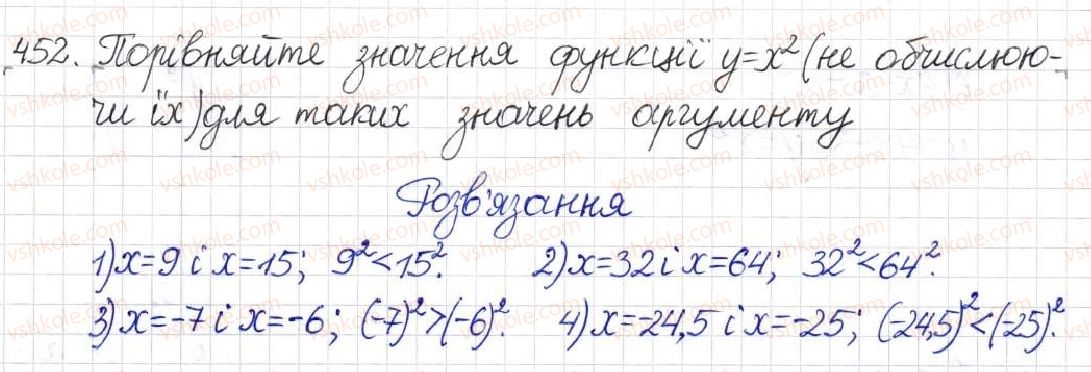 452. Порівняйте значення функції y=x² (не обчислюю-
чи їх) для таких значень аргументу
Розв'язання
1) x=9 i x=15; 9²<15². 2) x=32 i x=64; 32²<64².
3) x=-7 i x=-6; (-7)²>(-6)². 4) x=-24,5 i x=-25; (-24,5)²<(-25)².
vshkole.com